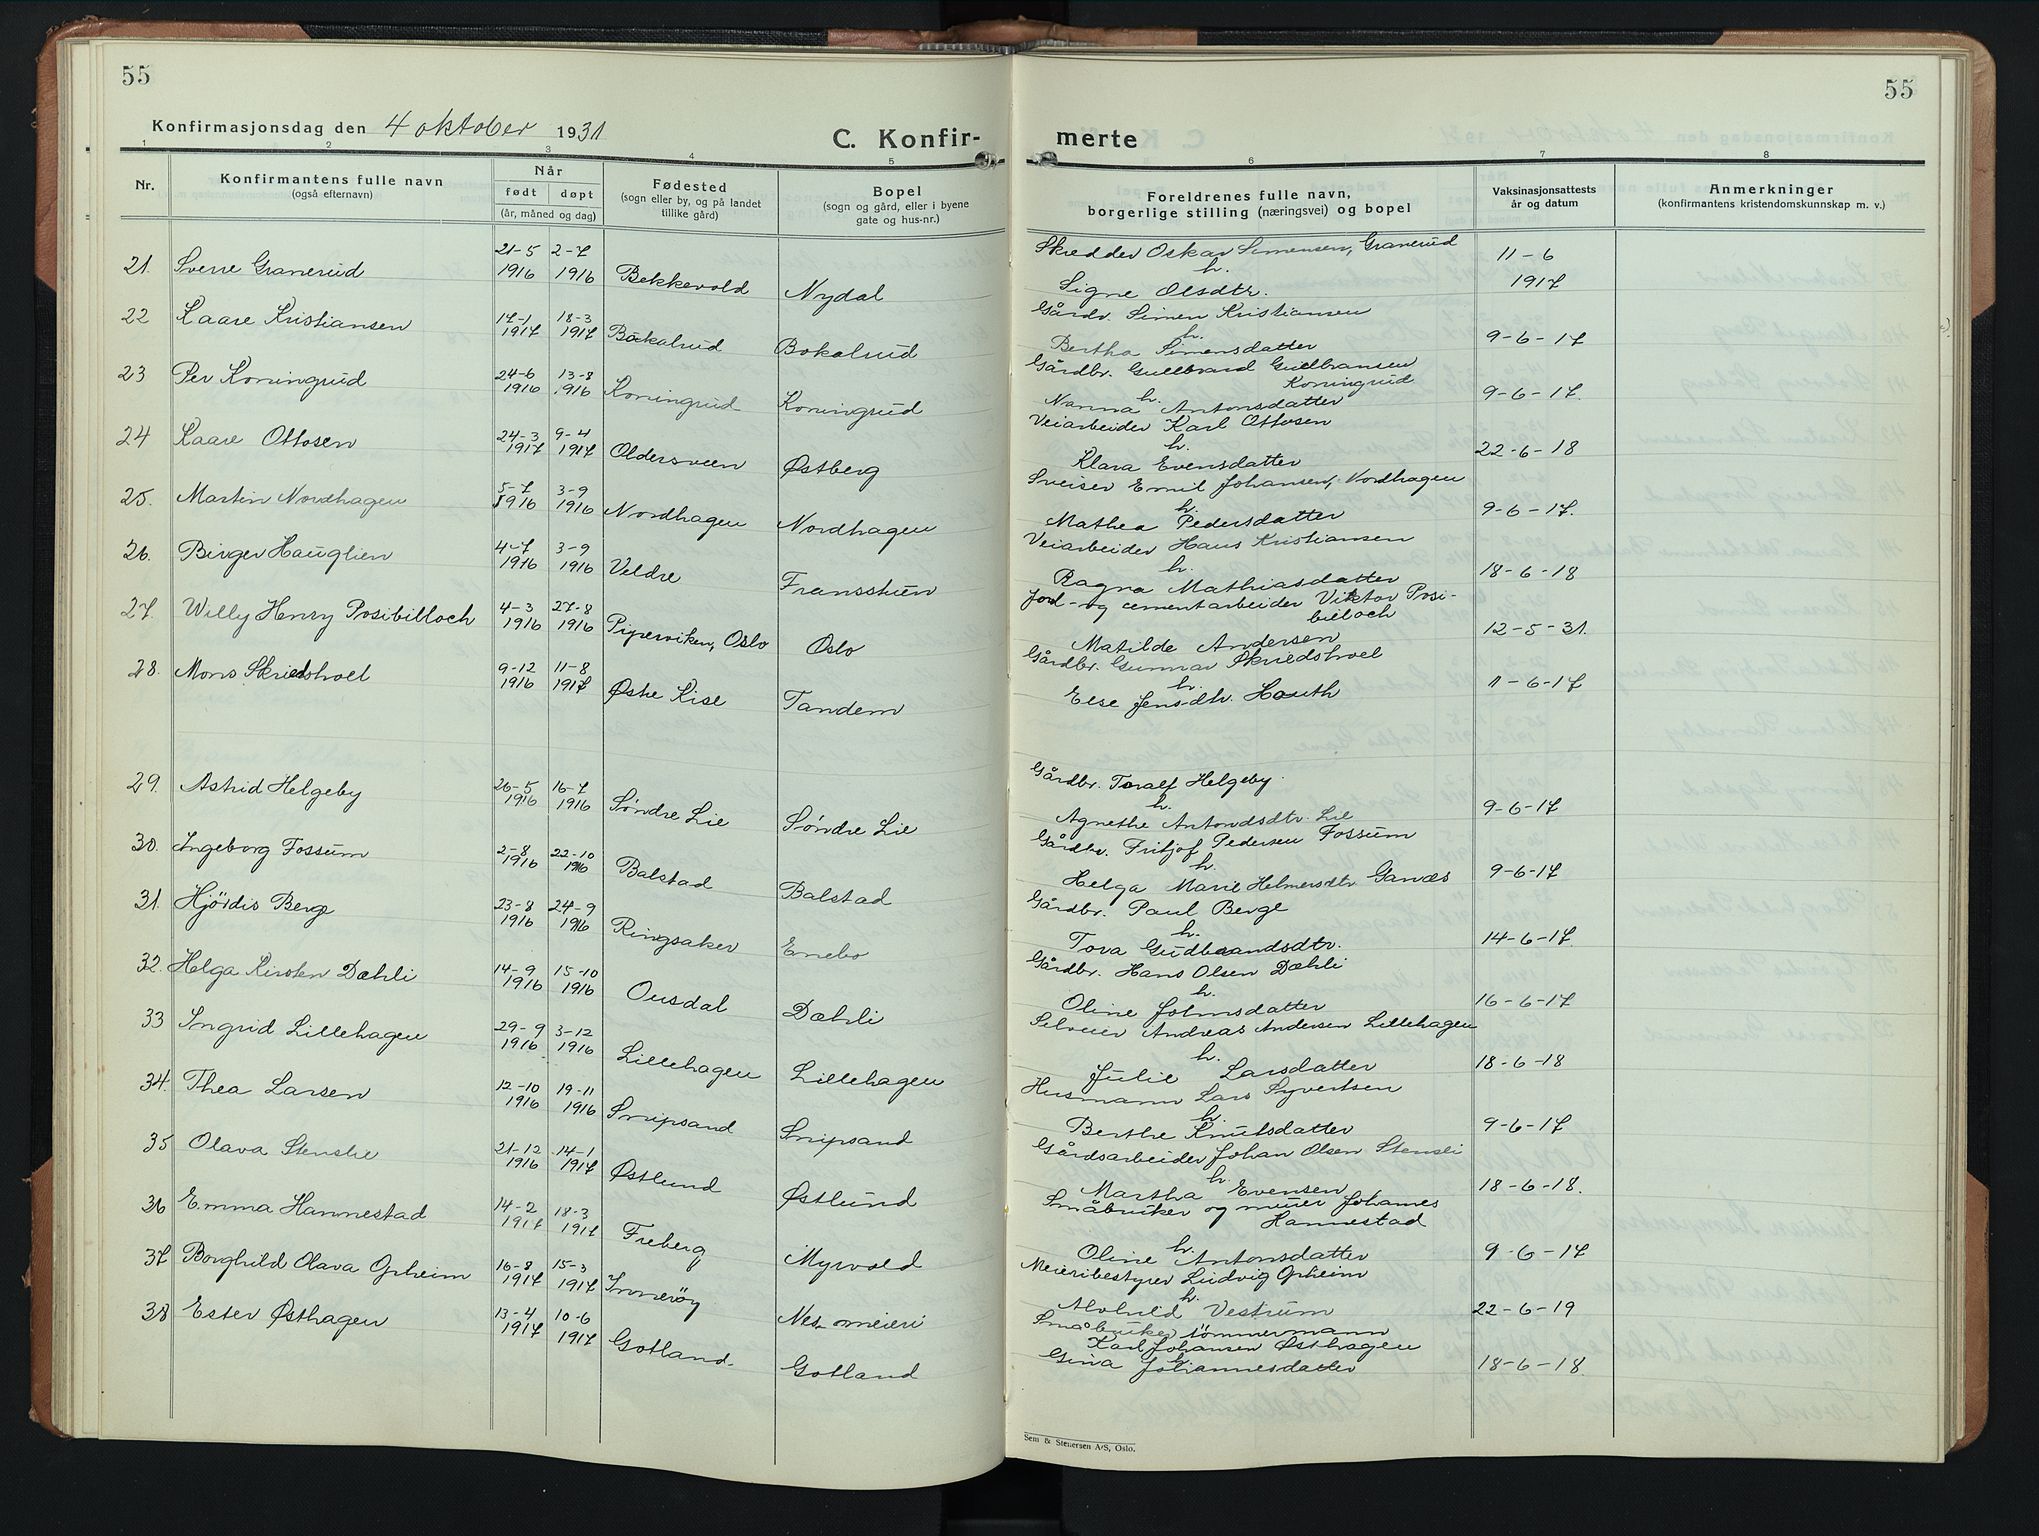 55
55
Konfirmasjonsdag den 4 oktober 1931
C. Konfir-
merte
1 2 3 4 5 6 7 8
Nr.
Konfirmantens fulle navn
(også efternavn)
Når
født døpt
(år, måned og dag)
Fødested
(sogn eller by, og på landet
tillike gård)
Bopel
(sogn og gård, eller i byene
gate og hus-nr.)
Foreldrenes fulle navn,
borgerlige stilling (næringsvei) og bopel
Vaksinasjonsattests
år og datum
Anmerkninger
(konfirmantens kristendomskunnskap m. v.)
21. Sverre Granerud 21-5 1916 2-7 1916 Bekkevold Nydal
Skredder Oskar Simensen, Granerud
h.
Signe Olsdtr. 11-6 1917
22 Kaare Kristiansen 17-1 1917 18-3 1917 Bakalrud Bakalrud
Gårdv. Simen Kristiansen
h.
Bertha Simensdatter 9-6-17
23 Per Koningrud 24-6 1916 13-8 1916 Koningrud Koningrud
Gårdbr. Gullbrand Gullbransen
Koningrud
h.
Nanna Antonsdatter 9-6-17.
24 Kaare Ottosen 24-3 1917 9-4 1917 Oldersveen Østberg
Veiarbeider Karl Ottosen
h.
Klara Evensdatter 22-6-18
25. Martin Nordhagen 5-7 1916 3-9 1916 Nordhagen Nordhagen
Sveiser Emil Johansen, Nordhagen
h.
Mathea Pedersdatter 9-6-17.
26. Birger Hauglien 4-7 1916 3-9 1916 Veldre Fransstuen
Veiarbeider Hans Kristiansen
h.
Ragna Mathiasdatter 18-6-18
27. Willy Henry Posibilloch 4-3 1916 27-8 1916 Piperviken, Oslo Oslo
Jord- og cementarbeider Viktor Posi-
billoch
Matilde Andersen 12-5-31.
28. Mons Skriedshoel 9-12 1916 11-8 1917 Østre Kise Tandem
Gårdbr. Gunnar Skriedshoel
h.
Else Jensdtr. Houth 11-6-17
29. Astrid Helgeby 26-5 1916 16-7 1916 Søndre Lie Søndre Lie
Gårdbr. Toralf Helgeby.
h.
Agnethe Antondsdtr. Lie 9-6-17
30. Ingeborg Fossum 2-8 1916 22-10 1916 Balstad Balstad
Gårdbr. Fritjof Pedersen Fossum
h.
Helga Marie Helmersdtr. Ganæs 9-6-17
31. Hjördis Berge 23-8 1916 24-9 1916 Ringsaker Enebo
Gårdbr. Paul Berge
h.
Tora Gudbrandsdtr. 14-6-17
32. Helga Kirsten Dæhli 14-9 1916 15-10 1916 Ousdal Dæhli
Gårdbr. Hans Olsen Dæhli
h.
Oline Johnsdatter 16-6-17
33 Ingrid Lillehagen 29-9 1916 3-12 1916 Lillehagen Lillehagen
Selveier Andreas Andersen Lillehagen
h.
Julie Larsdatter 18-6-18
34. Thea Larsen 12-10 1916 19-11 1916 Snipsand Snipsand
Husmann Lars Syvertsen
h.
Berthe Knutsdatter 9-6-17
35 Olava Stenslie 21-12 1916 14-1 1917 Østlund Østlund
Gårdsarbeider Johan Olsen Stensli
h.
Martha Evensen 18-6-18.
36 Emma Hannestad 14-2 1917 18-3 1917 Freberg Myrvold
Småbruker og murer Johannes
Hannestad
h.
Oline Antonsdatter 9-6-17
37 Borghild Olava Opheim 16-8 1917 15-3 1917 Innerøy Nes meieri
Meieribestyrer Ludvig Opheim
h.
Alvhild Vestrum 22-6-19
38 Ester Østhagen 13-4 1917 10-6 1917 Gotland. Gotland
Småbruker tömmermann
Karl Johansen Østhagen
Gina Johannesdatter 18-6-18.
Sem & Stenersen A/S, Oslo.